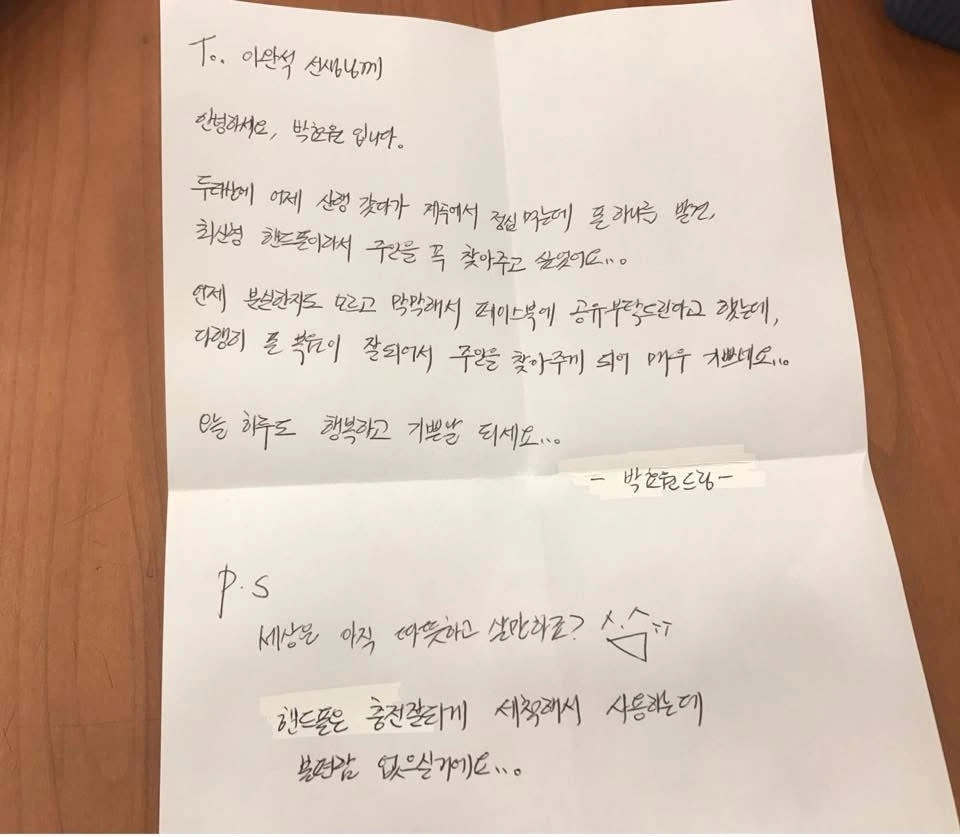 To. 이완석 선생님께
안녕하세요, 박효원 입니다.
두타산에 어제 산행 갔다가 계곡에서 점심 먹는데 폰 하나를 발견,
최신형 핸드폰이라서 주인을 꼭 찾아주고 싶었어요...
언제 분실한지도 모르고 막막해서 페이스북에 공유부탁드린다고 했는데,
다행히 폰 복원이 잘되어서 주인을 찾아주게 되어 매우 기쁘네요...
오늘 하루도 행복하고 기쁜날 되세요...
- 박효원드림 -
P.S
세상은 아직 따뜻하고 살만하죠?
핸드폰은 충전잘되게 세척해서 사용하는데
불편감 없으실거에요...